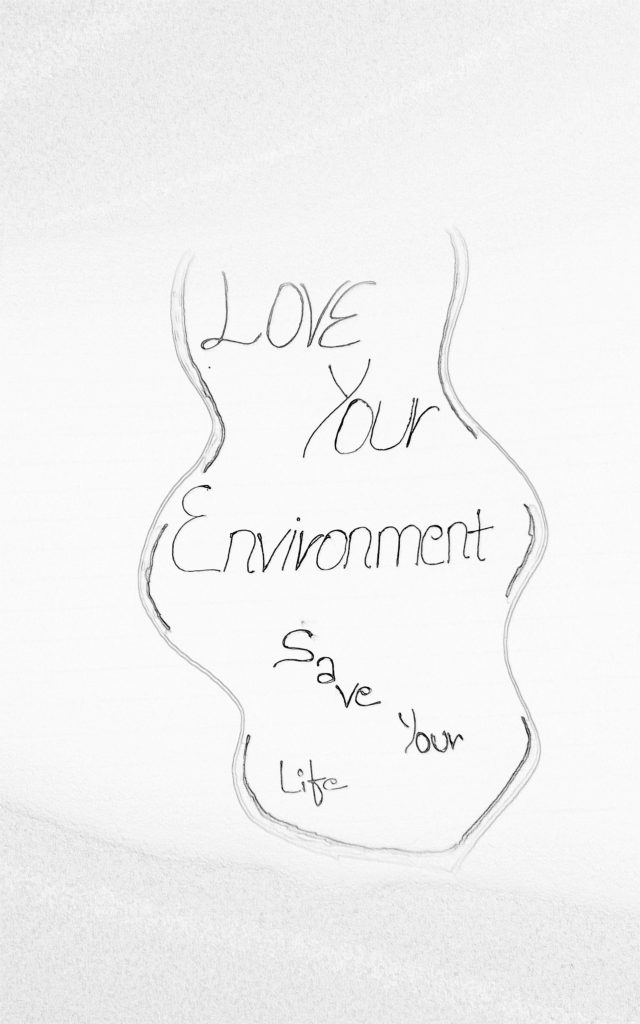 LOVE
Your
Environment
Save
Your
Life